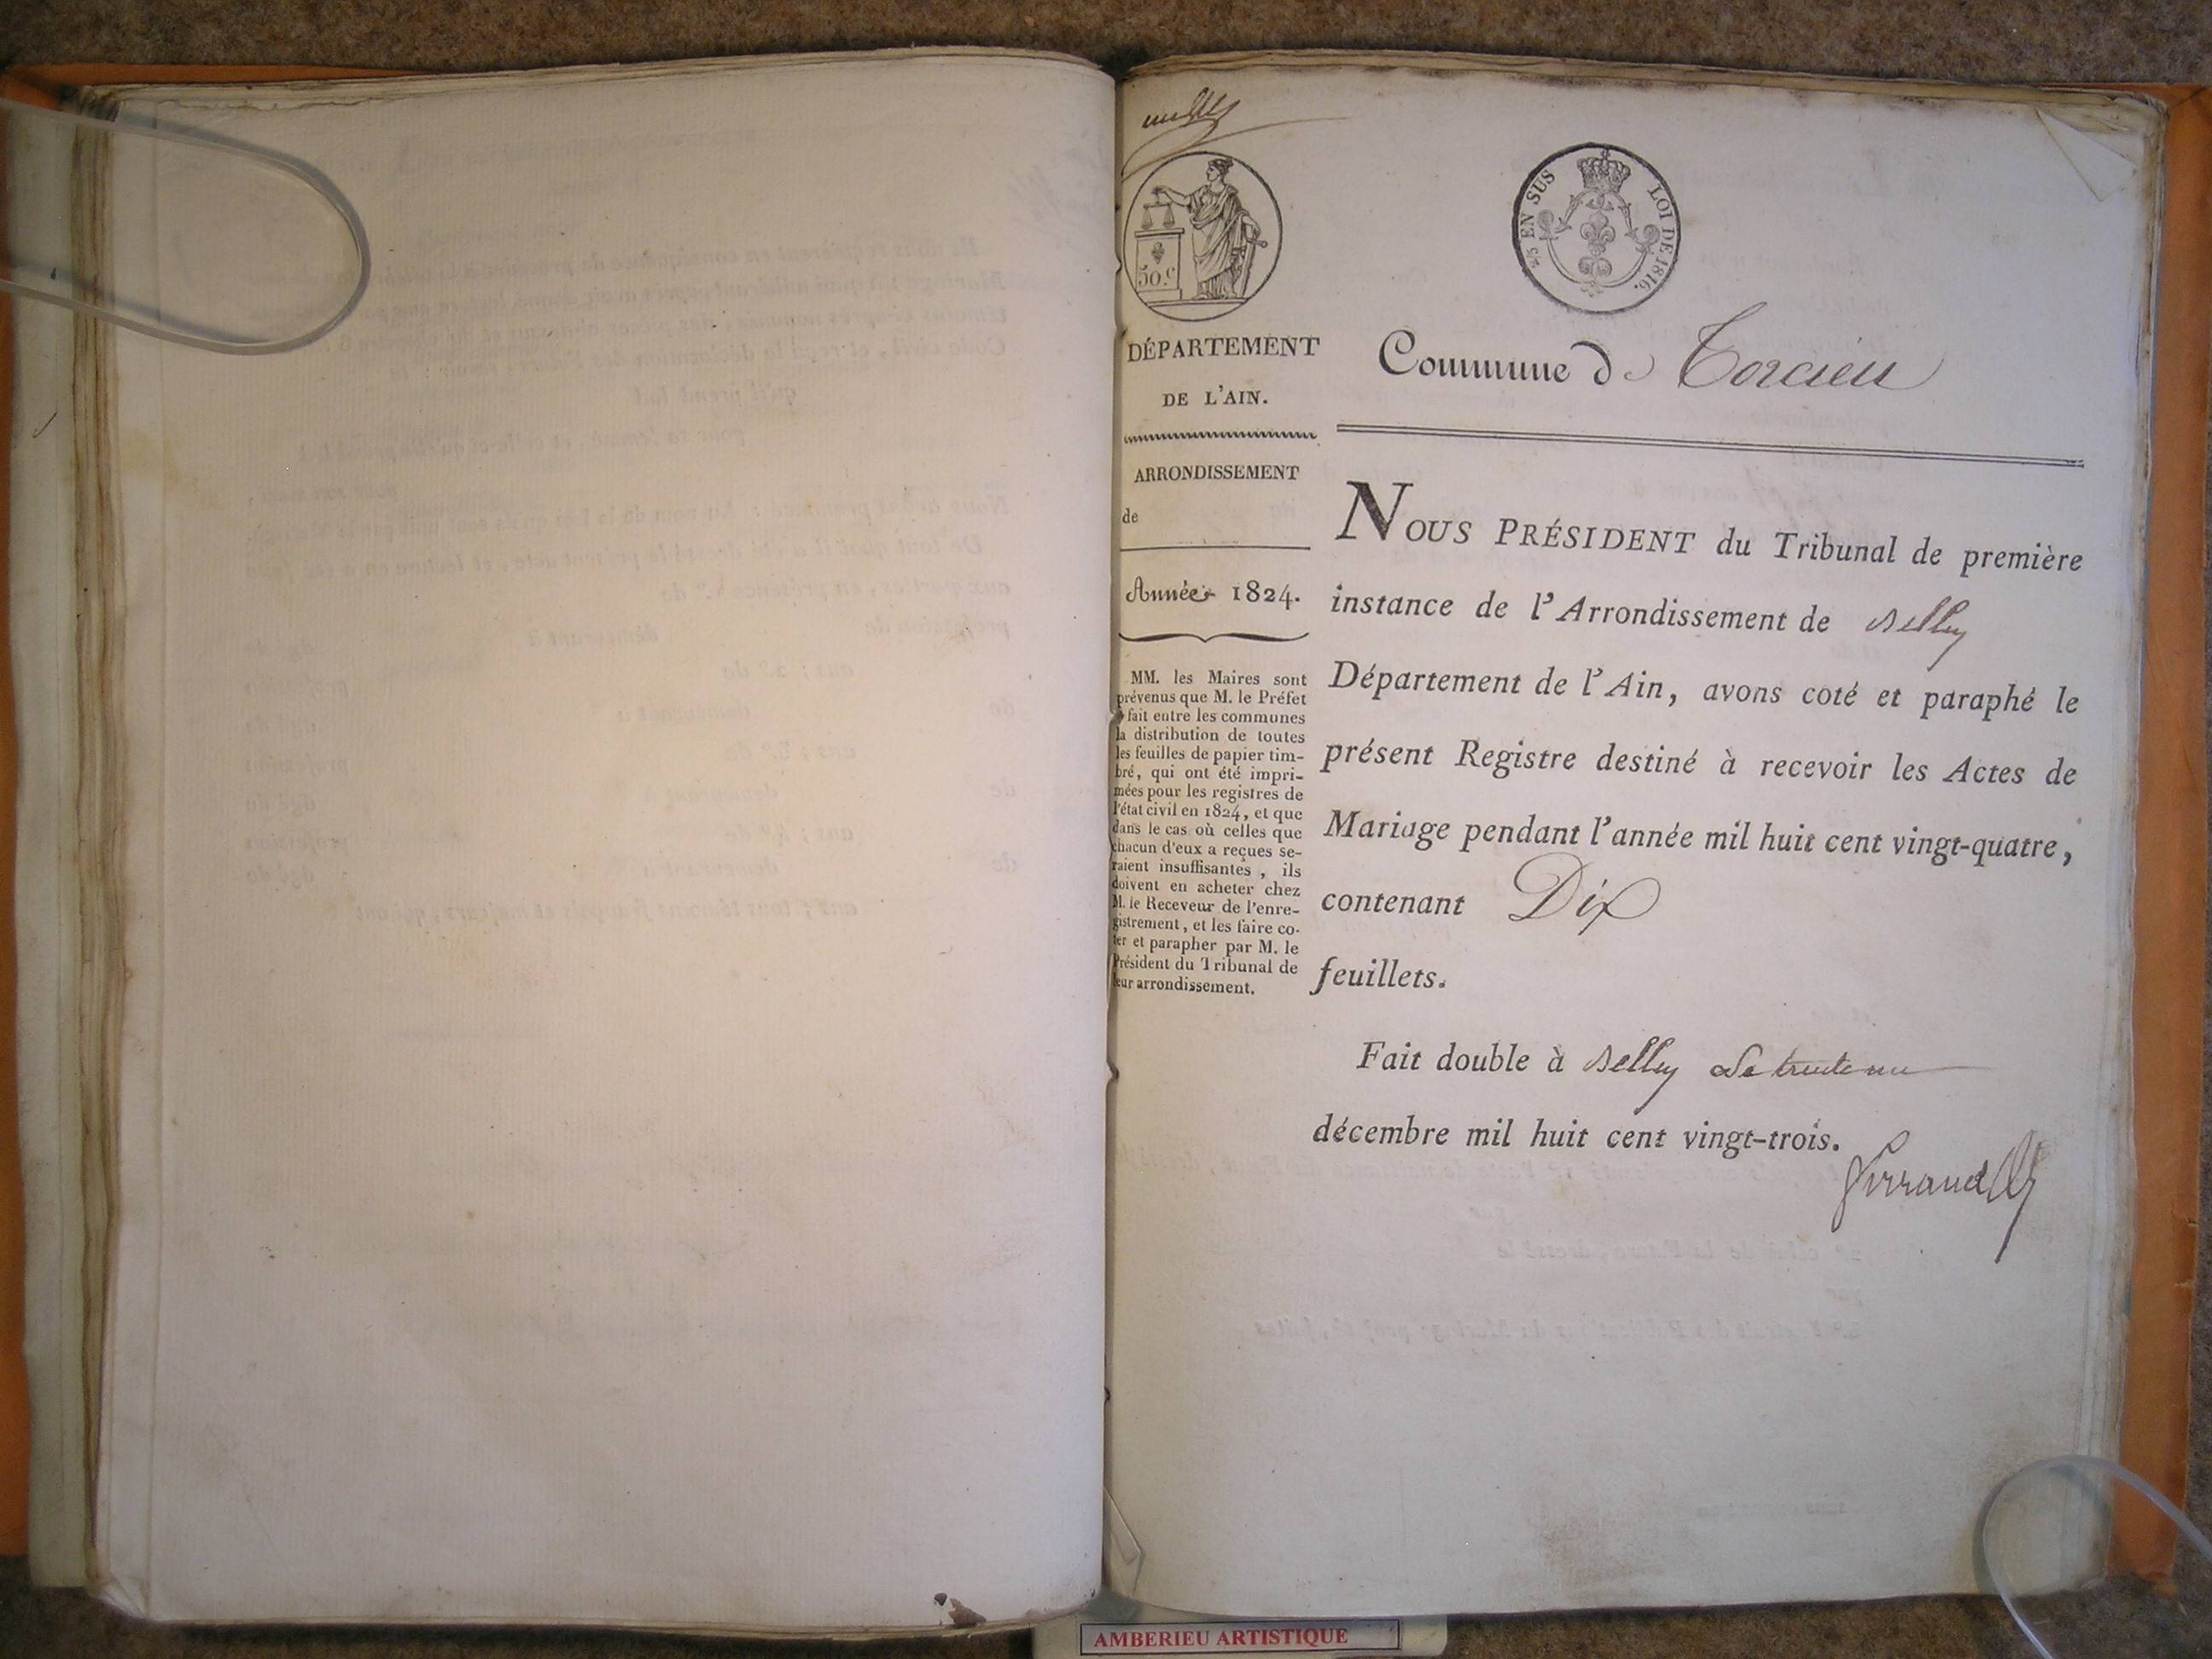 50.c
25 EN SUS LOI DE 1816.
DÉPARTEMENT
DE L'AIN.
ARRONDISSEMENT
de
Année 1824.
MM. les Maires sont
prévenus que M. le Préfet
a fait entre les communes
la distribution de toutes
les feuilles de papier tim-
bré, qui ont été impri-
mées pour les registres de
l'état civil en 1824, et que
dans le cas où celles que
chacun d'eux a reçues se-
raient insuffisantes, ils
doivent en acheter chez
M. le Receveur de l'enre-
gistrement, et les faire co-
ter et parapher par M. le
Président du Tribunal de
leur arrondissement.
Commune de Torcieu
NOUS PRÉSIDENT du Tribunal de première
instance de l'Arrondissement de Belley
Département de l'Ain, avons coté et paraphé le
présent Registre destiné à recevoir les Actes de
Mariage pendant l'année mil huit cent vingt-quatre,
contenant Dix
feuillets.
Fait double à Belley Le trente un
décembre mil huit cent vingt-trois.
AMBERIEU ARTISTIQUE